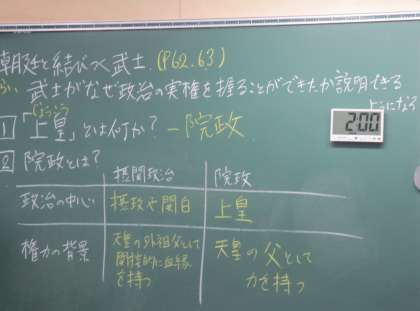 朝廷と結びつく武士 (P62.63)
武士がなぜ政治の実権を握ることができたか説明できる
ようになろう
じょうこう
1 「上皇」とは何か? -院政
2:00
2 院政とは?
摂関政治 院政
政治の中心 摂政や関白 上皇
権力の背景 天皇の外祖父として 天皇の父として
間接的に血縁 力を持つ
を持つ